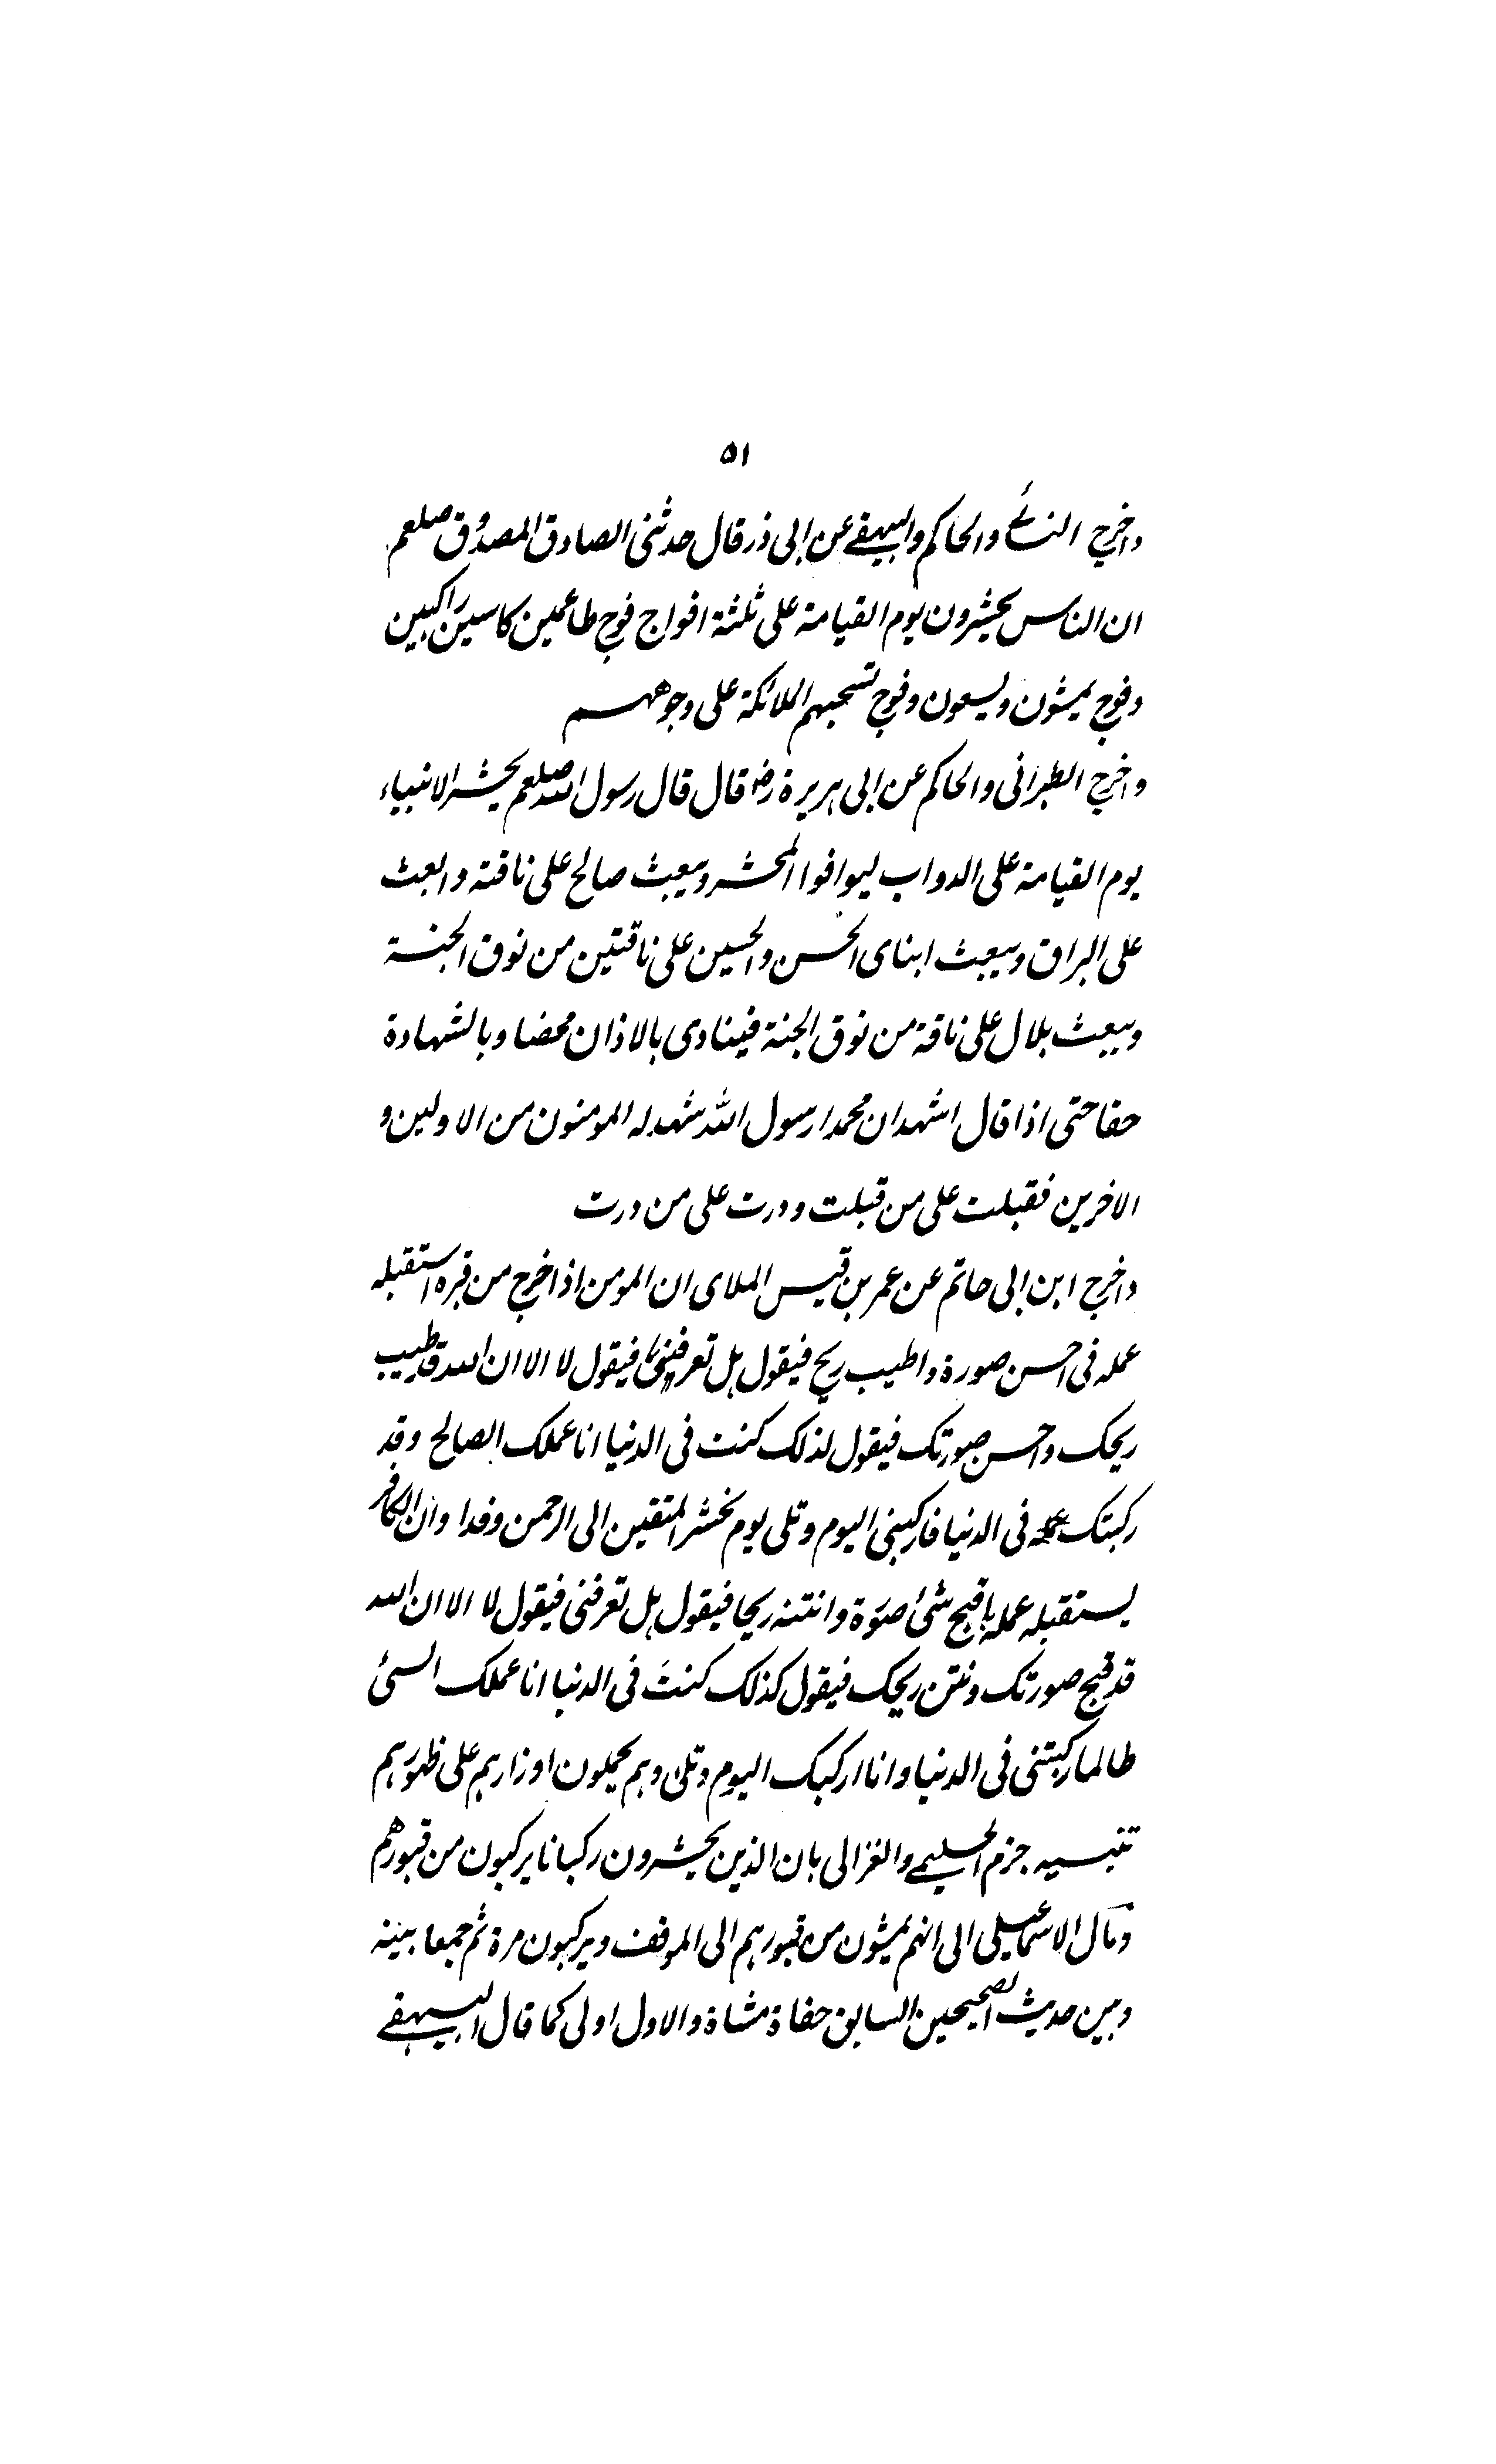 ۵۱
واخرج النسائے والحاکم والبیہقے عن ابی ذر قال حدثنی الصادق المصدوق صلعم
ان الناس یحشرون یوم القیامۃ علی ثلثۃ افواج فوج طاعمین کاسین راکبین
وفوج یمشون ویسعون وفوج تسحبہم الملائکۃ علی وجوھہم
واخرج الطبرانی والحاکم عن ابی ہریرۃ رضہ قال قال رسول اللہ صلعم یحشر الانبیاء
یوم القیامۃ علی الدواب لیوافوا المحشر ویبعث صالح علی ناقتہ وابعث
علی البراق ویبعث ابنای الحسن والحسین علی ناقتین من نوق الجنۃ
ویبعث بلال علی ناقۃ من نوق الجنۃ فینادی بالاذان محضا وبالشہادۃ
حقا حتی اذا قال اشہد ان محمدا رسول اللہ شہد لہ المومنون من الاولین و
الاخرین فقبلت علی من قبلت وردت علی من ردت
واخرج ابن ابی حاتم عن عمر بن قیس الملای ان المومن اذا خرج من قبرہ استقبلہ
عملہ فی احسن صورۃ واطیب ریح فیقول ہل تعرفنی فیقول لا الا ان اللہ قد طیب
ریحک واحسن صورتک فیقول لذلک کنت فی الدنیا انا عملک الصالح وقد
رکبتک فی الدنیا فارکبنی الیوم وتلی یوم نحشر المتقین الی الرحمن وفدا وان الکافر
یستقبلہ عملہ باقبح شیٔ صورۃ وانتنہ ریحا فیقول ہل تعرفنی فیقول لا الا ان اللہ
قد قبح صورتک ونتن ریحک فیقول کذلک کنت فی الدنیا انا عملک السیٔ
طالما رکبتنی فی الدنیا وانا ارکبک الیوم وتلی وہم یحملون اوزارہم علی ظہورہم
تنبیہ جزم الحلیمے والغزالی بان الذین یحشرون رکبانا یرکبون من قبورھم
ومال الاسماعیلی الی انہم یمشون من قبورہم الی الموقف ویرکبون مرۃ ثم جمعا بینہ
وبین حدیث الصحیحین السابق حفاۃ مشاۃ والاول اولی کما قال البیہقے